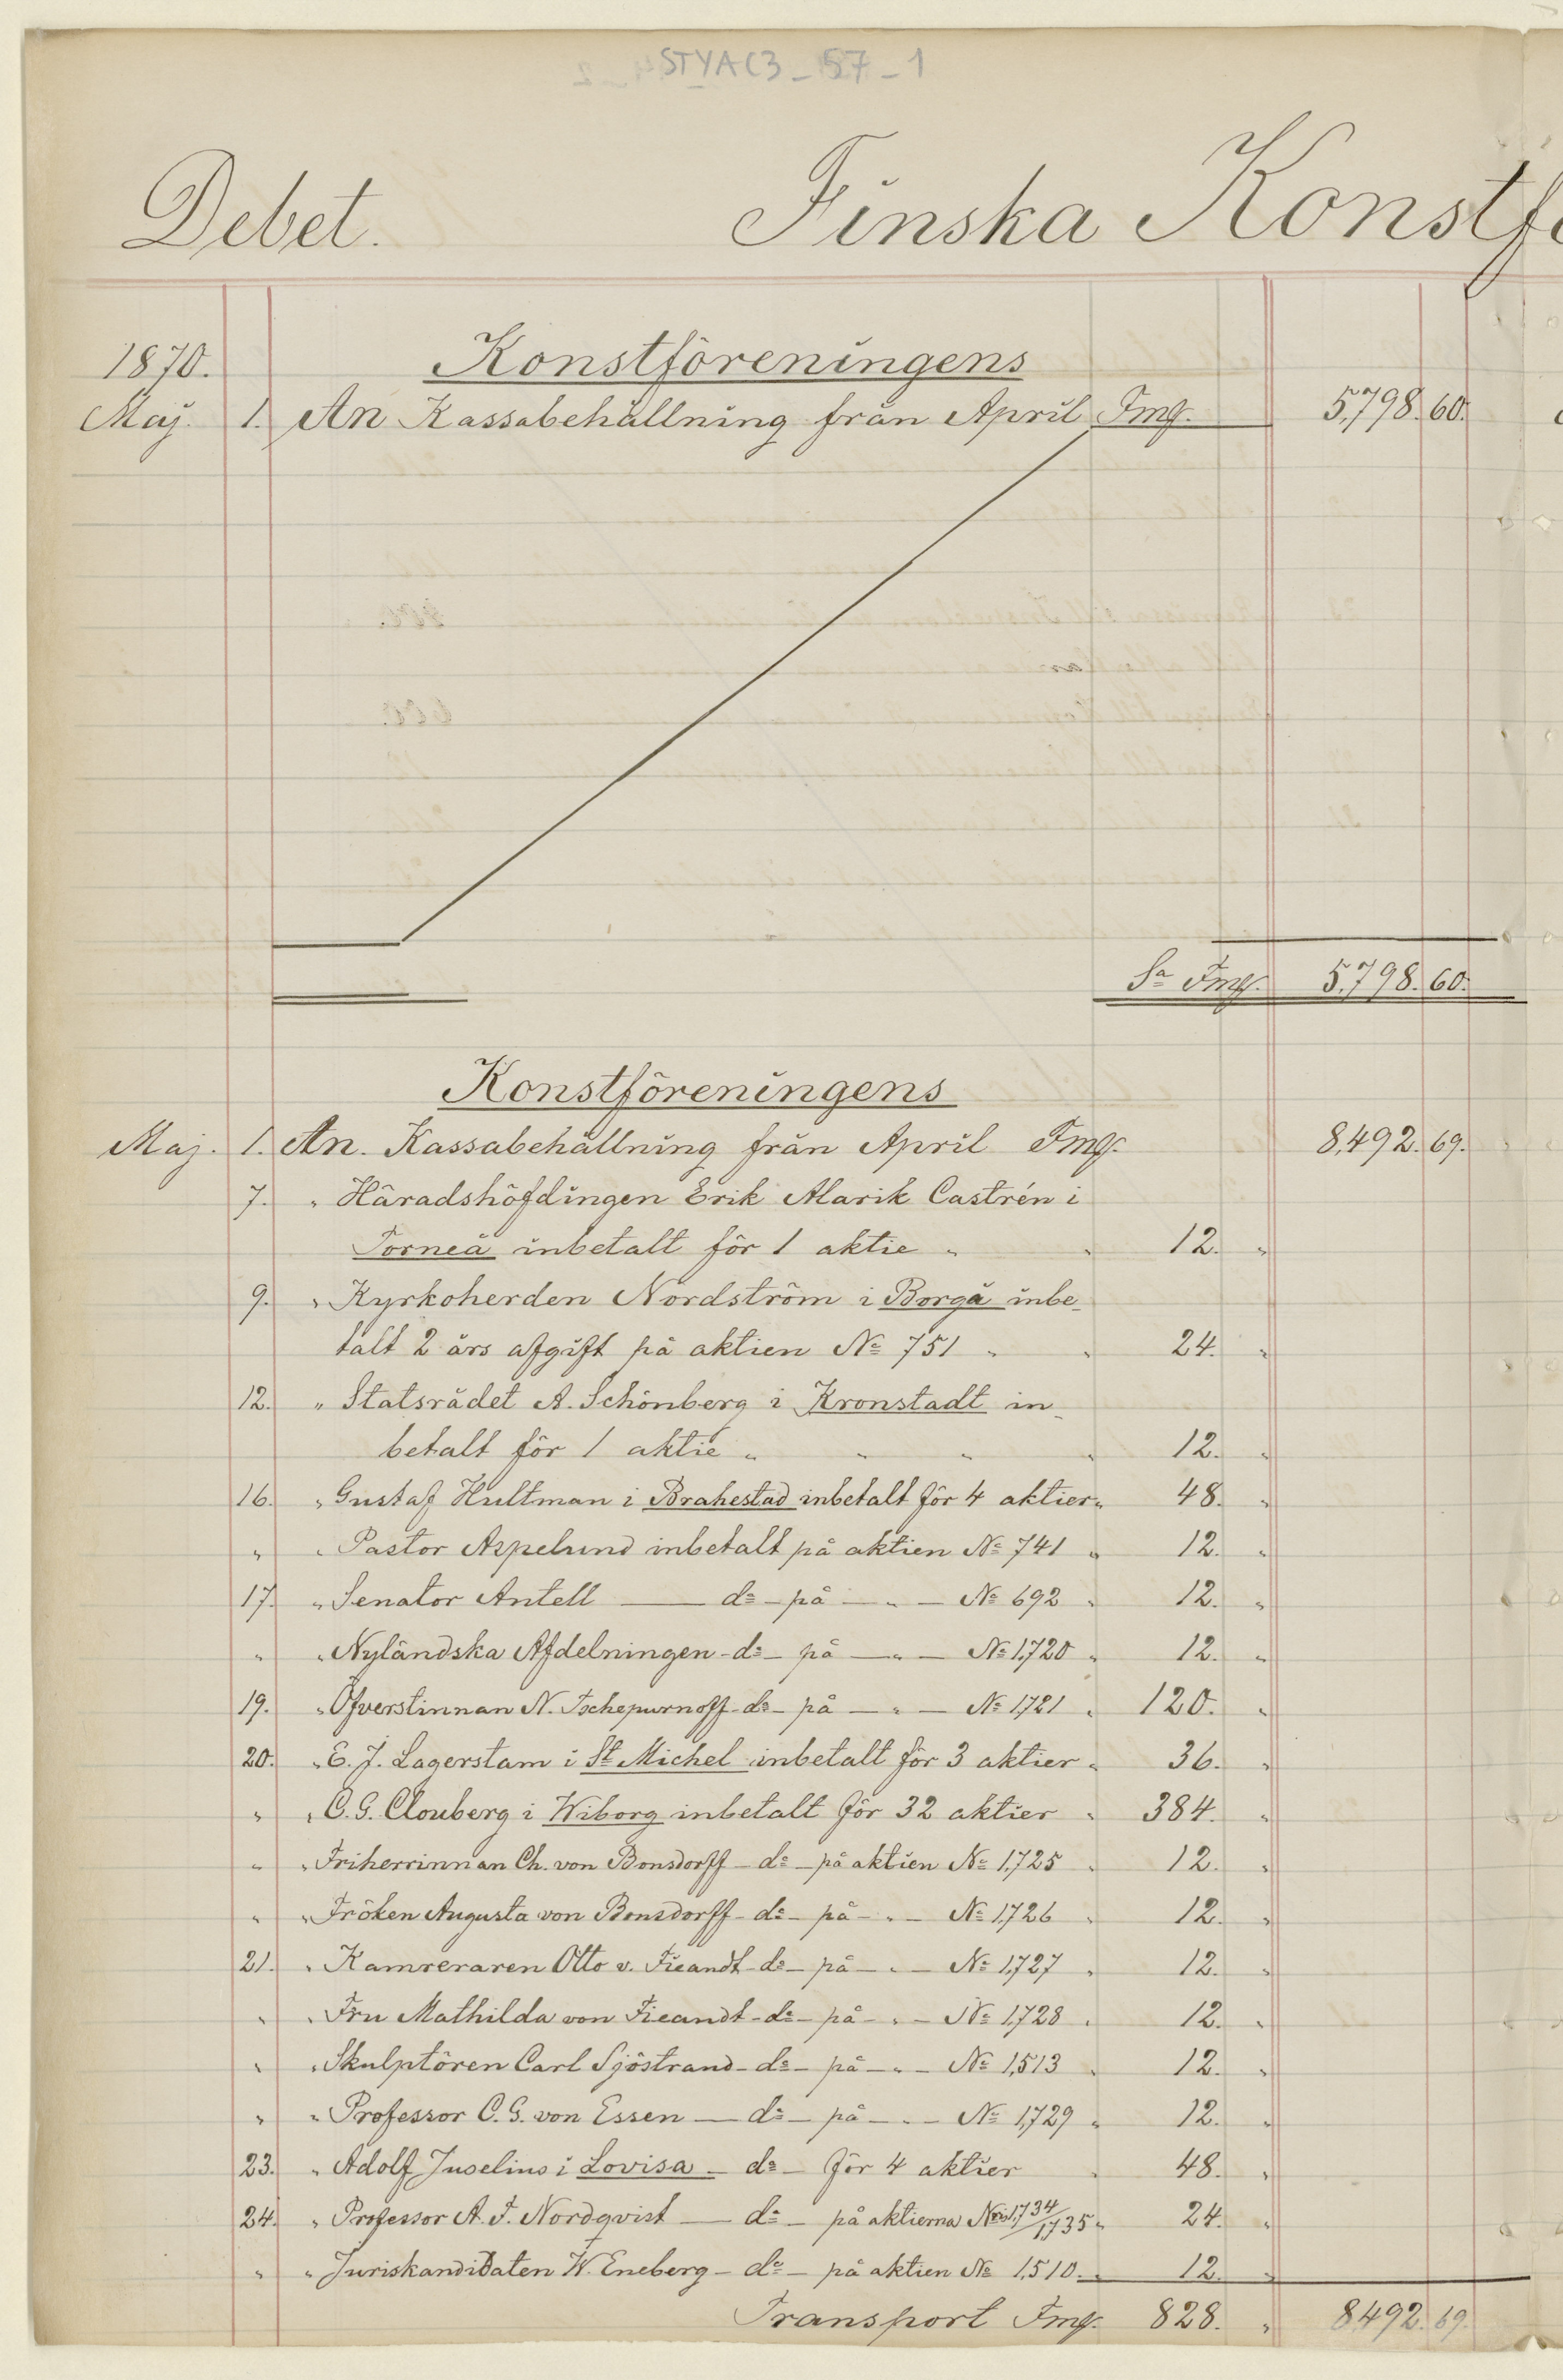 STYA C3 _ 57 _ 1
Debet. Finska Konstfö
Konstföreningens
1870.
Maj. 1. An Kassabehållning från April Fmg. 5,798. 60.
Sa Fmg. 5,798. 60.
Konstföreningens
Maj. 1. An. Kassabehållning från April Fmg. 8,492. 69.
7. " Häradshöfdingen Erik Alarik Castrén i
Torneå inbetalt för 1 aktie " " 12. "
9. " Kyrkoherden Nordström i Borgå inbe-
talt 2 års afgift på aktien No 751 " " 24. "
12. " Statsrådet A. Schönberg i Kronstadt in-
betalt för 1 aktie " " " " 12. "
16. " Gustaf Hultman i Brahestad inbetalt för 4 aktier " 48. "
" " Pastor Arpelund inbetalt på aktien No 741 " 12. "
17. " Senator Antell — do — på — " — No 692 " 12. "
" " Nyländska Afdelningen - do - på — " — No 1,720 " 12. "
19. " Öfverstinnan N. Tschepurnoff - do - på — " — No 1,721 " 120. "
20. " E. J. Lagerstam i St Michel inbetalt för 3 aktier " 36. "
" " C. G. Clouberg i Wiborg inbetalt för 32 aktier " 384. "
" " Friherrinnan Ch. von Bonsdorff - do - på aktien No 1,725 " 12. "
" " Fröken Augusta von Bonsdorff - do - på - " - No 1,726 " 12. "
21. " Kamreraren Otto v. Fieandt - do - på — " — No 1,727 " 12. "
" " Fru Mathilda von Fieandt - do - på - " - No 1,728 " 12. "
" " Skulptören Carl Sjöstrand - do - på - " - No 1,513 " 12. "
" " Professor C. G. von Essen — do - på — " — No 1,729 " 12. "
23. " Adolf Juselius i Lovisa - do - för 4 aktier " 48. "
24. " Professor A. F. Nordqvist — do - på aktierna Nris 1,734/1,735 " 24. "
" " Juriskandidaten W. Eneberg - do - på aktien No 1,510. " 12. "
Transport Fmg. 828. " 8492. 69.